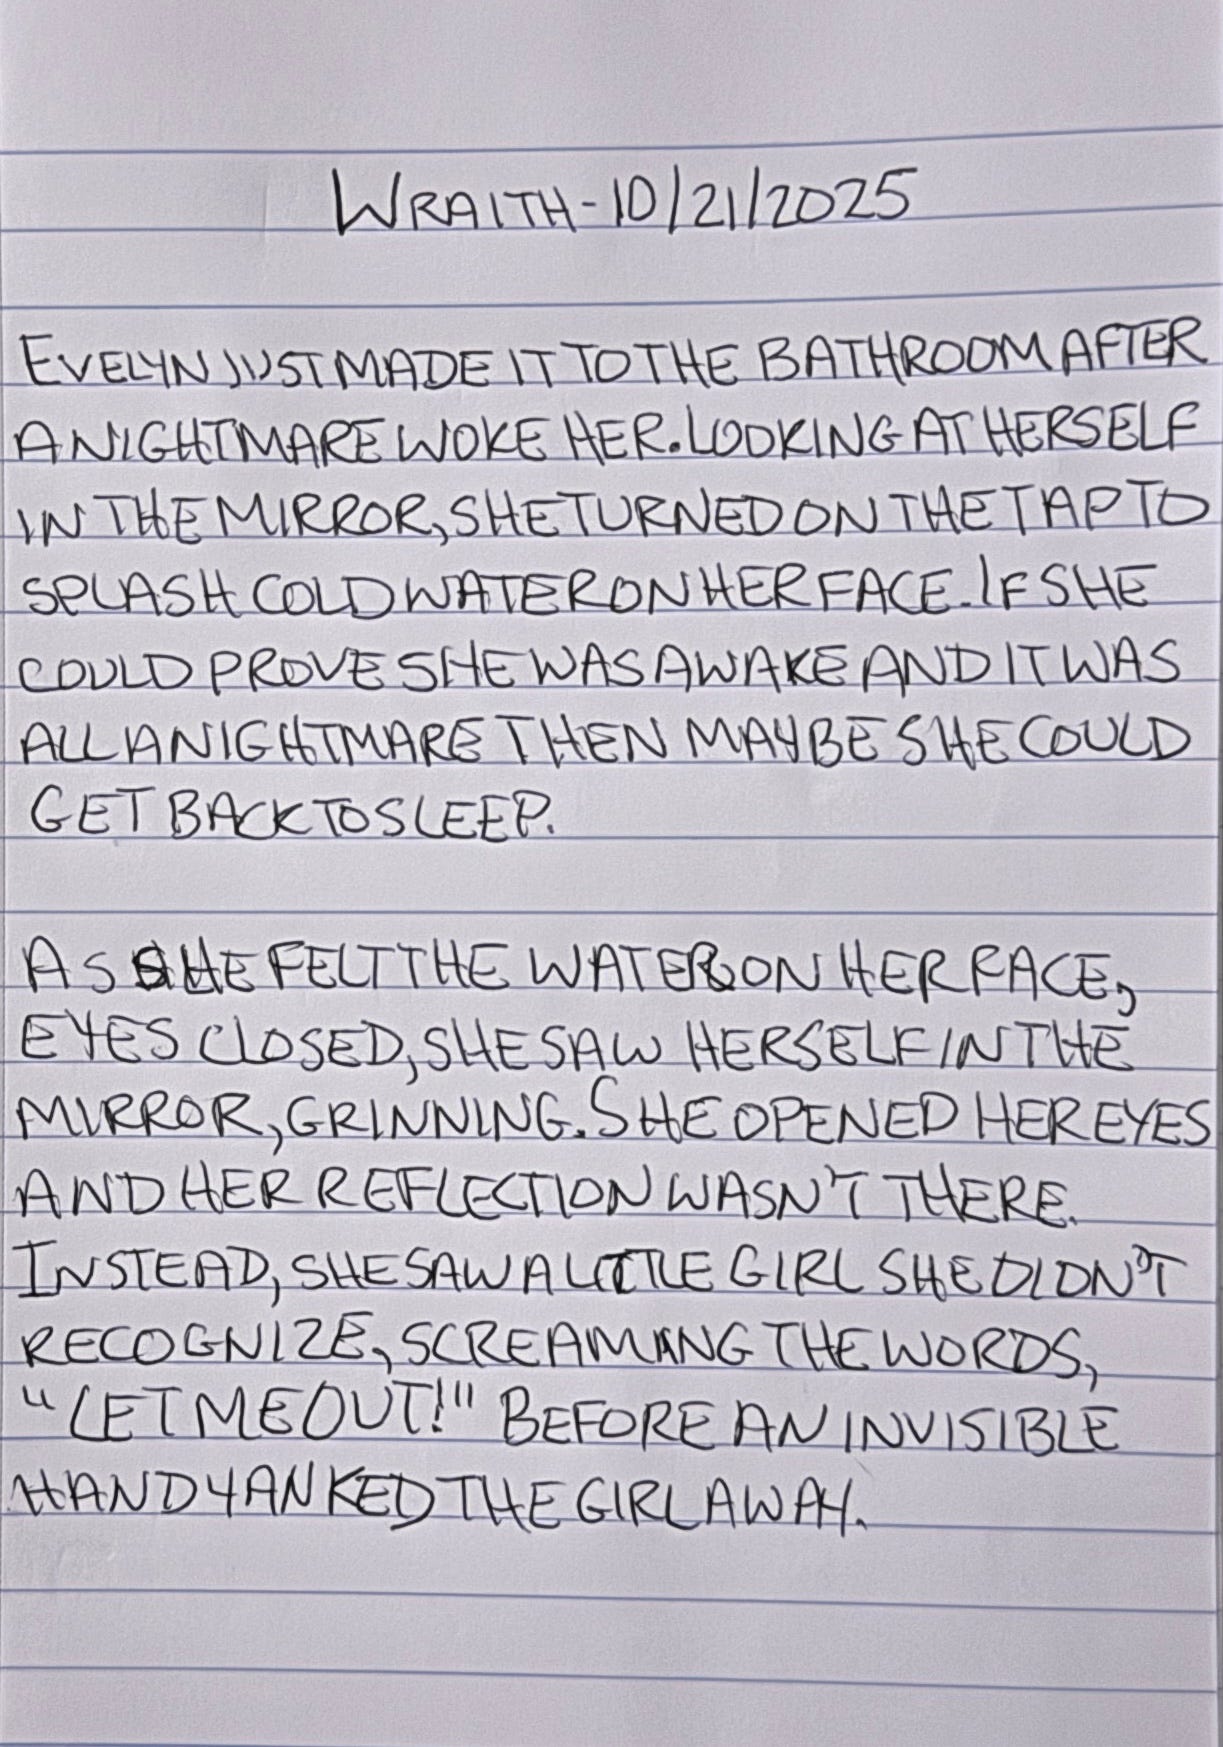 WRAITH - 10/21/2025
EVELYN JUST MADE IT TO THE BATHROOM AFTER
A NIGHTMARE WOKE HER. LOOKING AT HERSELF
IN THE MIRROR, SHE TURNED ON THE TAP TO
SPLASH COLD WATER ON HER FACE. IF SHE
COULD PROVE SHE WAS AWAKE AND IT WAS
ALL A NIGHTMARE THEN MAYBE SHE COULD
GET BACK TO SLEEP.
AS SHE FELT THE WATER ON HER FACE,
EYES CLOSED, SHE SAW HERSELF IN THE
MIRROR, GRINNING. SHE OPENED HER EYES
AND HER REFLECTION WASN'T THERE.
INSTEAD, SHE SAW A LITTLE GIRL SHE DIDN'T
RECOGNIZE, SCREAMING THE WORDS,
"LET ME OUT!" BEFORE AN INVISIBLE
HAND YANKED THE GIRL AWAY.